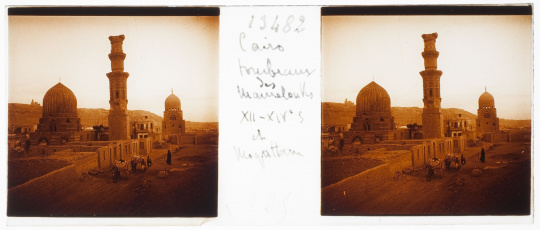 13482
Cairo
tombeaux
des
Mamelouks
XII-XIVᵉ S
et
Moqattam